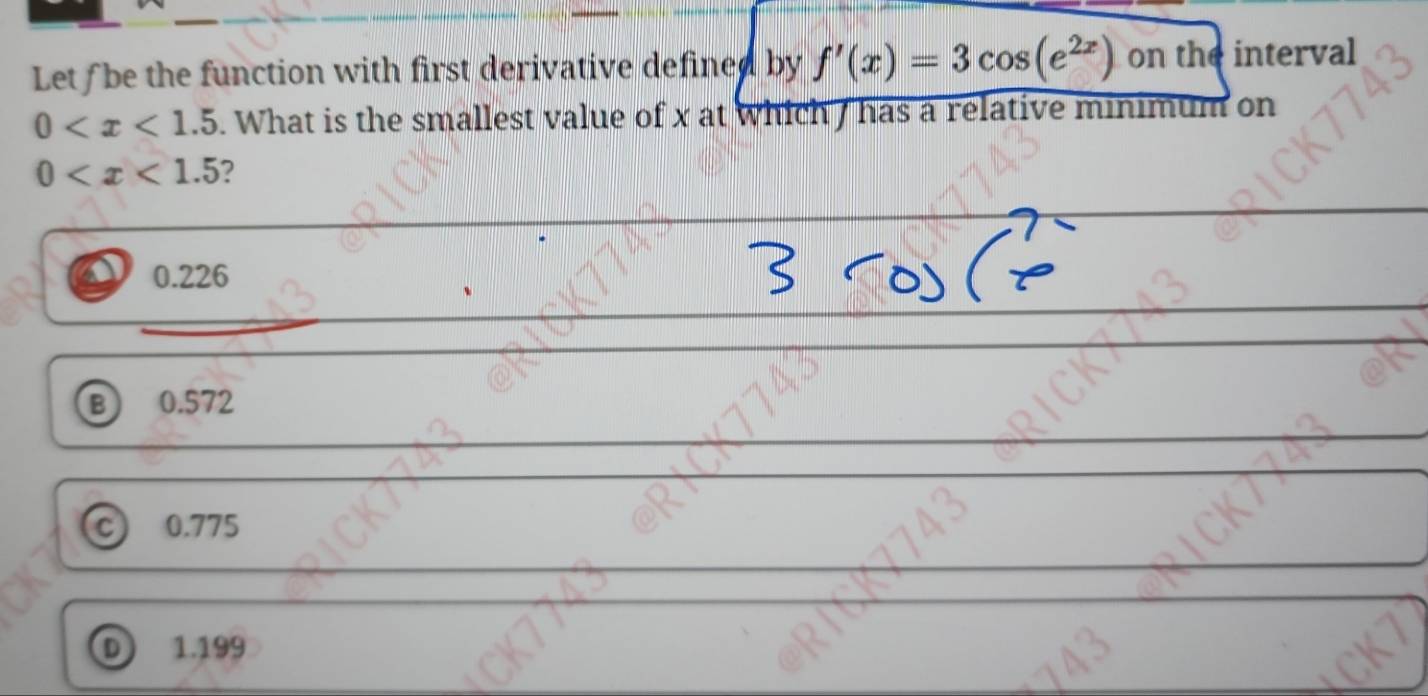 Let f be the function with first derivative defined by f′(x) = 3 cos(e^{2x}) on the interval
0 < x < 1.5. What is the smallest value of x at which f has a relative minimum on
0 < x < 1.5?
A 0.226
3 cos(e^{2x}
B 0.572
C 0.775
D 1.199
@RICK7743